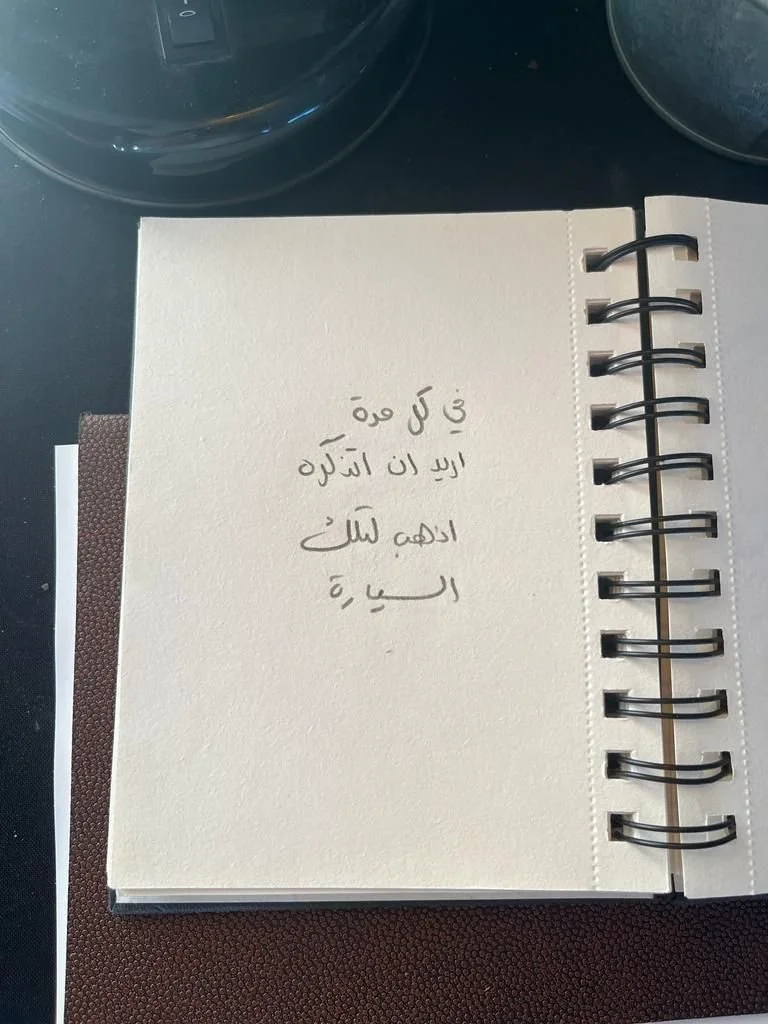 في كل مرة
اريد ان اتذكره
اذهب لتلك
السيارة